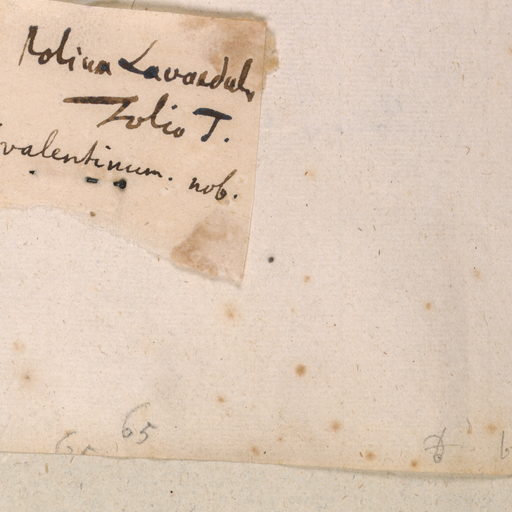 Polium Lavandulæ
folio T.
valentinum. nob.
65
65